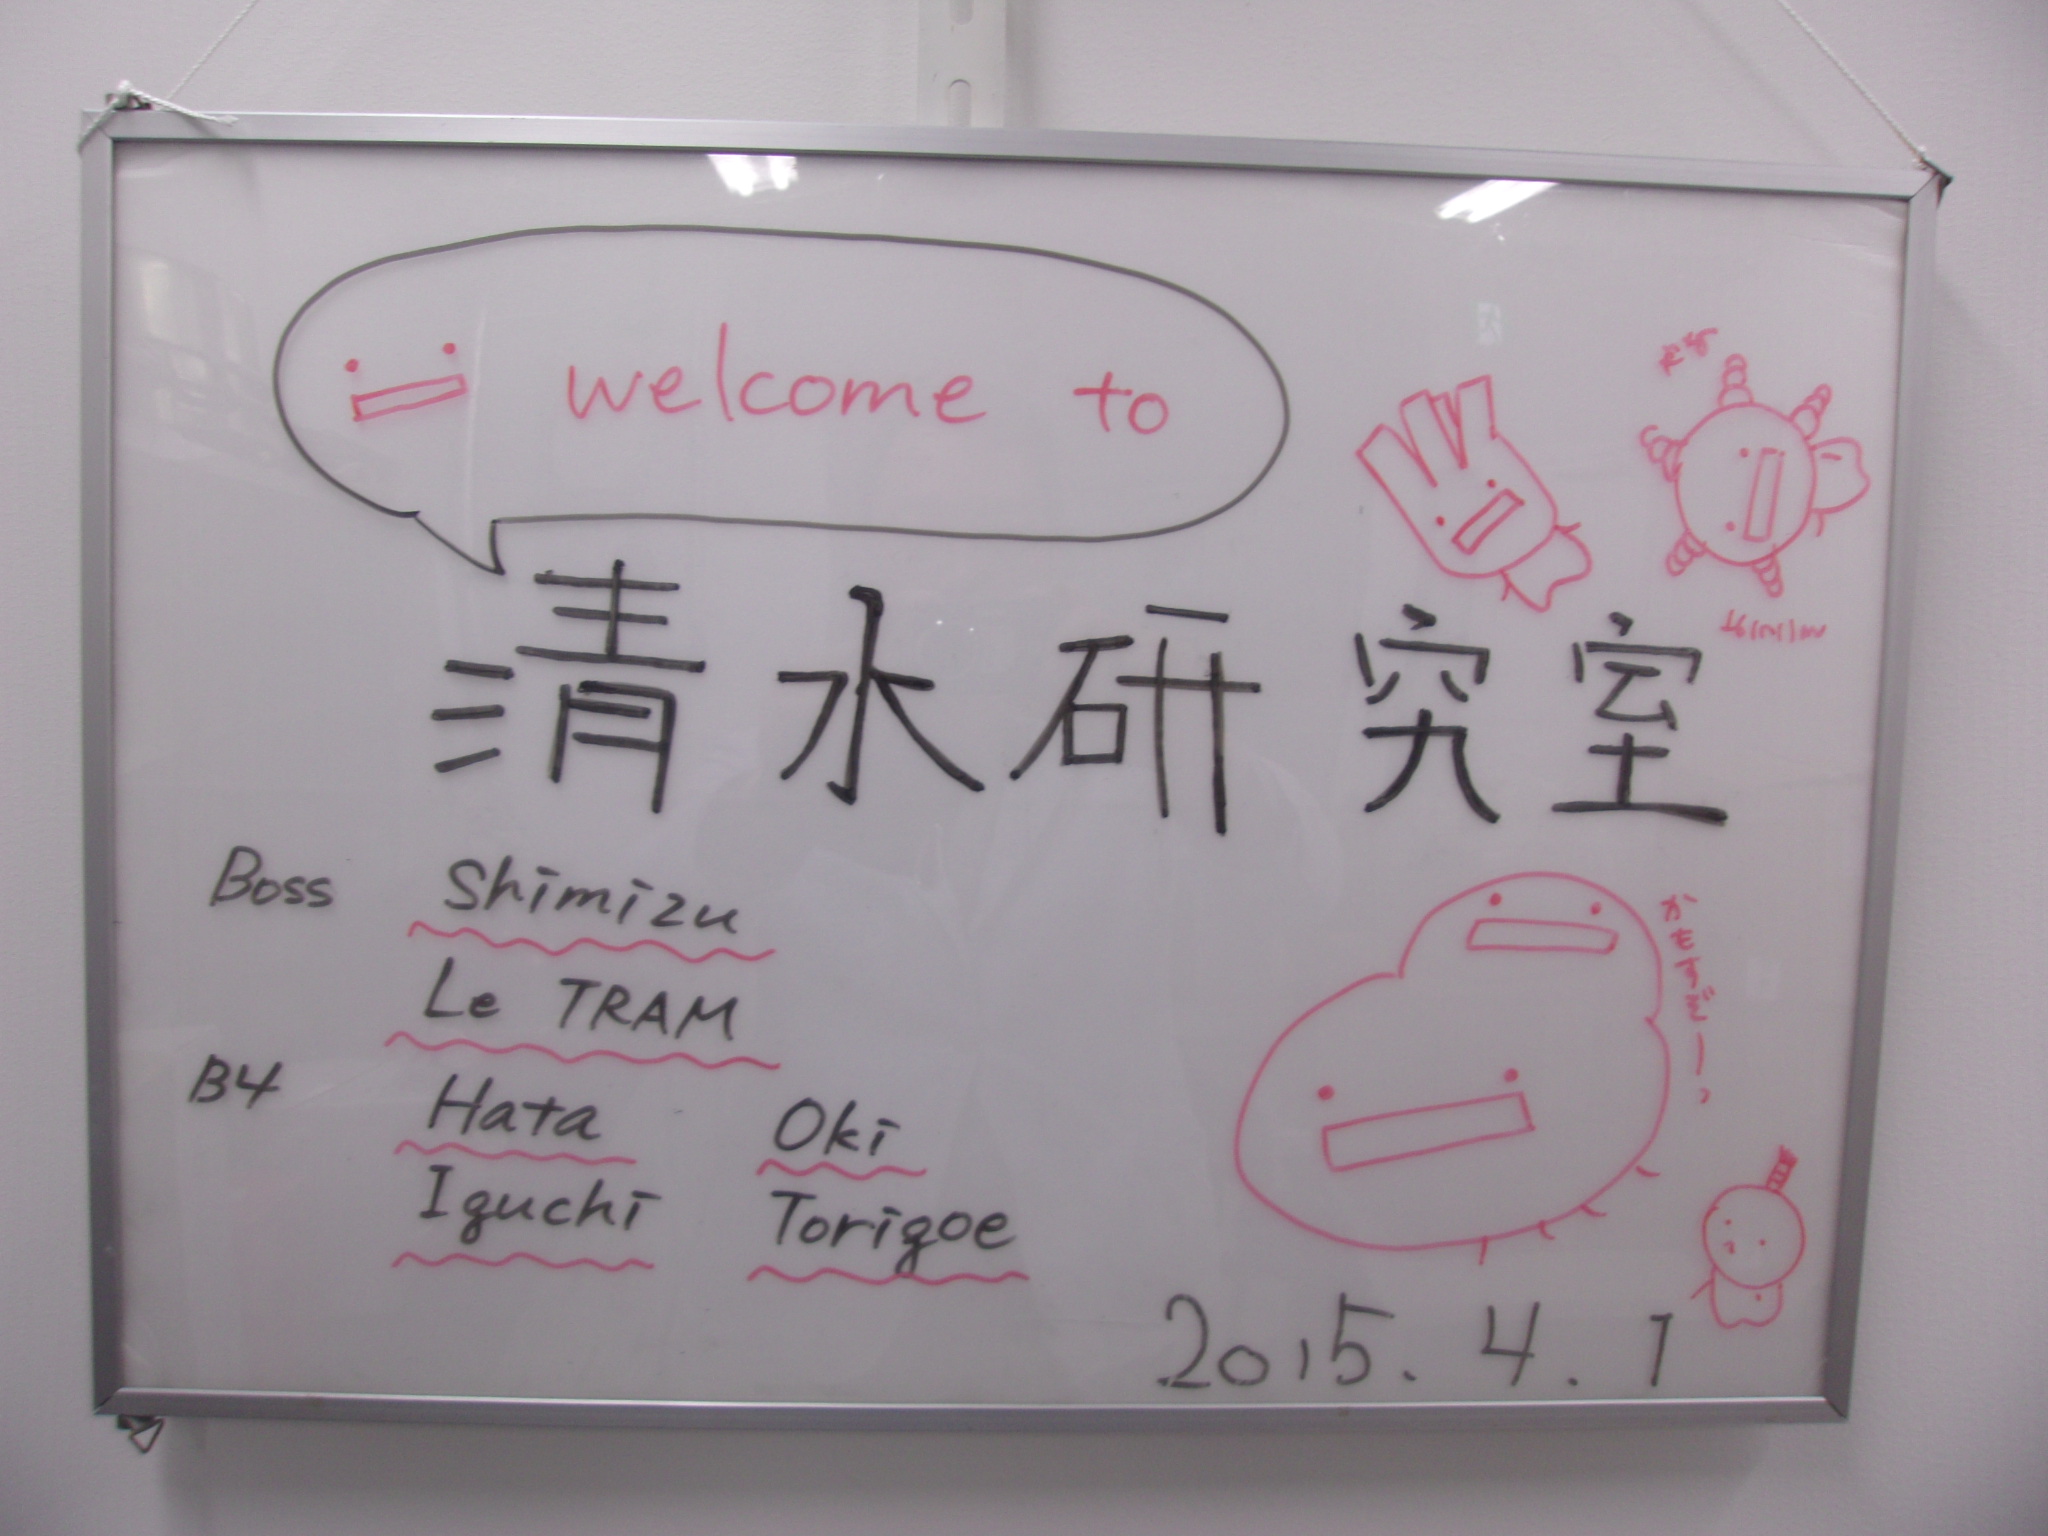 welcome to
清水研究室
Boss Shimizu
Le TRAM
B4 Hata Oki
Iguchi Torigoe
かもすぞーっ
2015.4.1